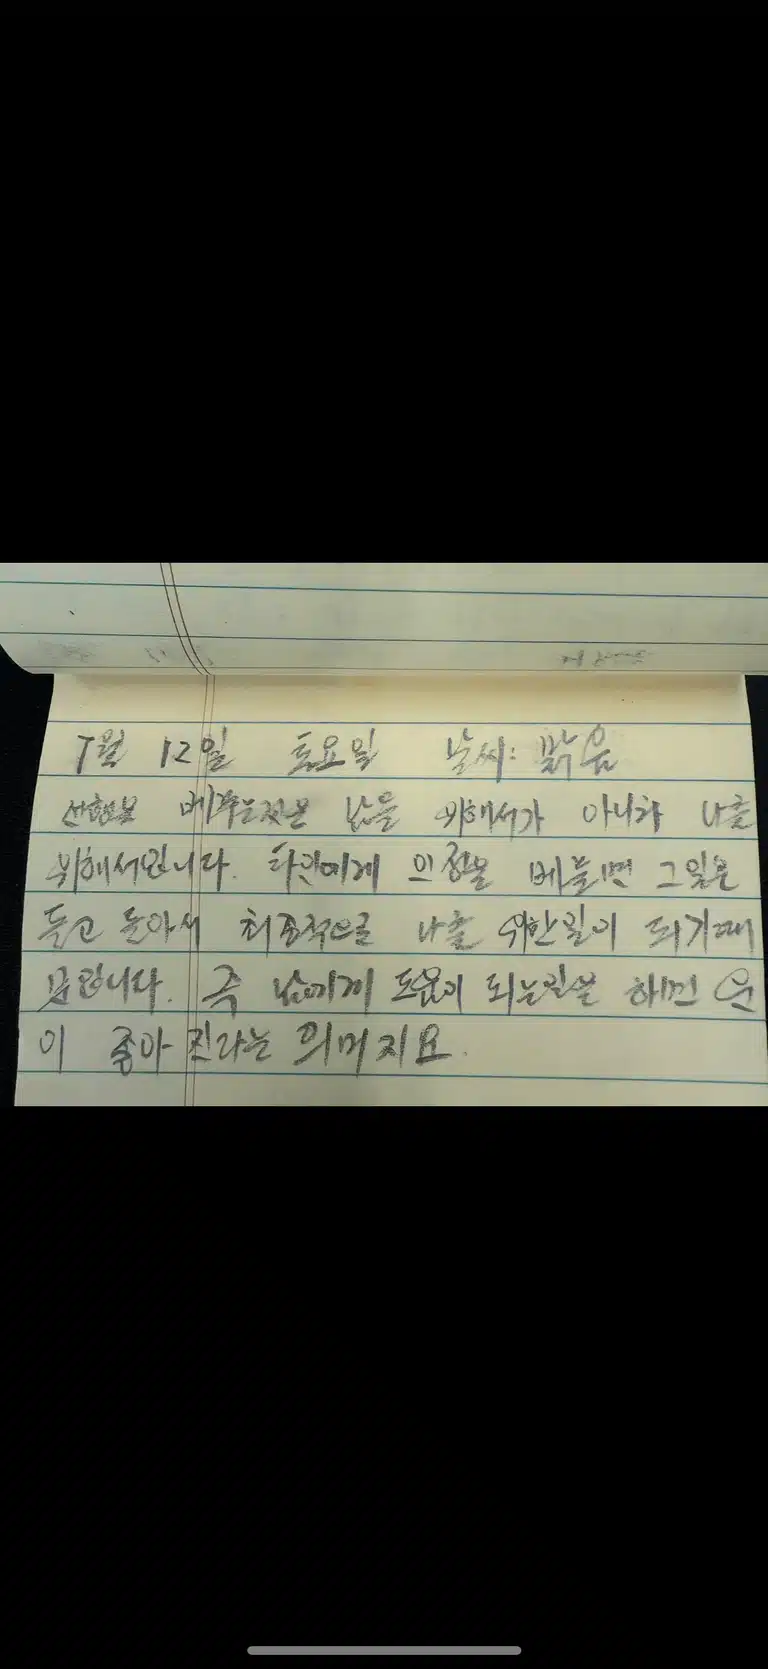 7월 12일 토요일 날씨: 맑음
선행을 베푸는것은 남을 위해서가 아니라 나를
위해서입니다. 타인에게 인정을 베풀면 그일은
돌고 돌아서 최종적으로 나를 위한일이 되기때
문입니다. 즉 남에게 도움이 되는일을 하면 운
이 좋아 진다는 의미지요.